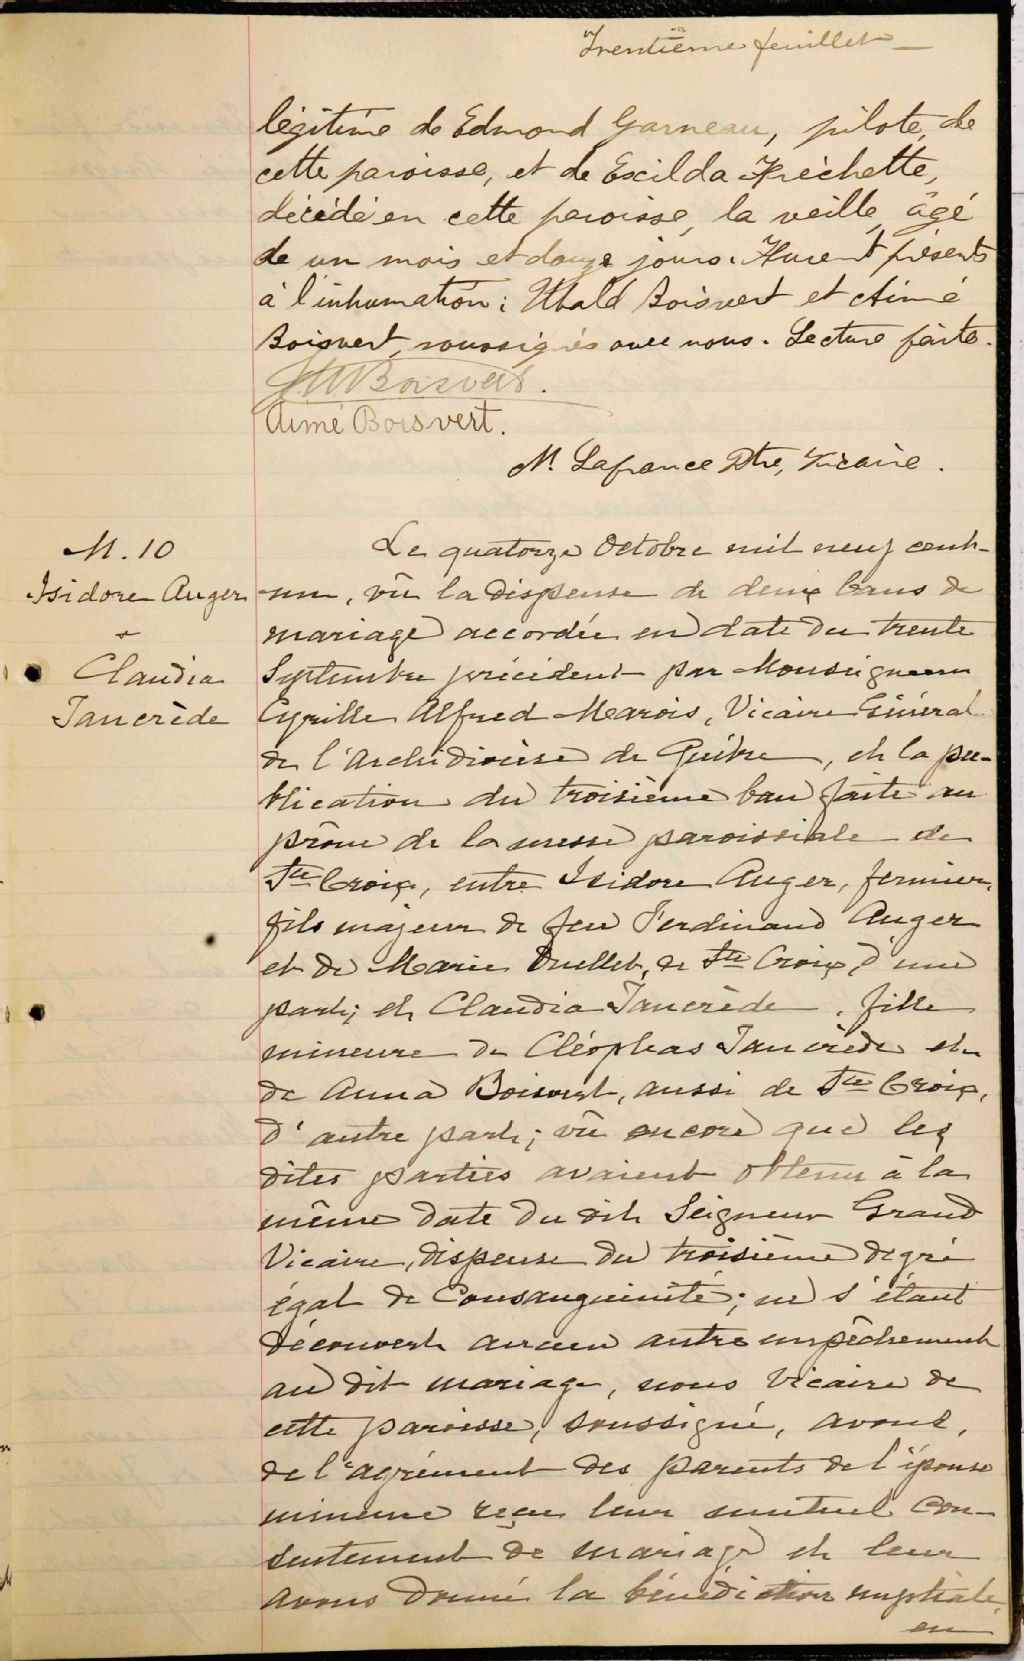 Trentième feuillet
légitime de Edmond Garneau, pilote, de
cette paroisse, et de Exilda Fréchette,
décédé en cette paroisse, la veille, âgé
de un mois et douze jours. Furent présents
à l'inhumation: Ubald Boisvert et Aimé
Boisvert, soussignés avec nous. Lecture faite.
Boisvert.
Aimé Boisvert.
M. Lafrance Ptre, Vicaire.
M. 10
Isidore Auger
+
Claudia
Tancrède
Le quatorze Octobre mil neuf cent-
un, vû la dispense de deux bans de
mariage accordée en date du trente
Septembre précédent par Monseigneur
Cyrille Alfred Marois, Vicaire Général
de l'Archidiocèse de Québec, et la pu-
blication du troisième ban faite au
prône de la messe paroissiale de
Ste Croix, entre Isidore Auger, fermier,
fils majeur de feu Ferdinand Auger
et de Marie Ouellet, de Ste Croix, d'une
part; et Claudia Tancrède, fille
mineure de Cléophas Tancrède et
de Anna Boisvert, aussi de Ste Croix,
d'autre part; vû encore que les
dites parties avaient obtenu à la
même date du dit Seigneur Grand
Vicaire, dispense du troisième degré
égal de Consanguinité; ne s'étant
découvert aucun autre empêchement
au dit mariage, nous Vicaire de
cette paroisse, soussigné, avons,
de l'agrément des parents de l'épouse
mineure reçu leur mutuel con-
sentement de mariage et leur
avons donné la bénédiction nuptiale
en